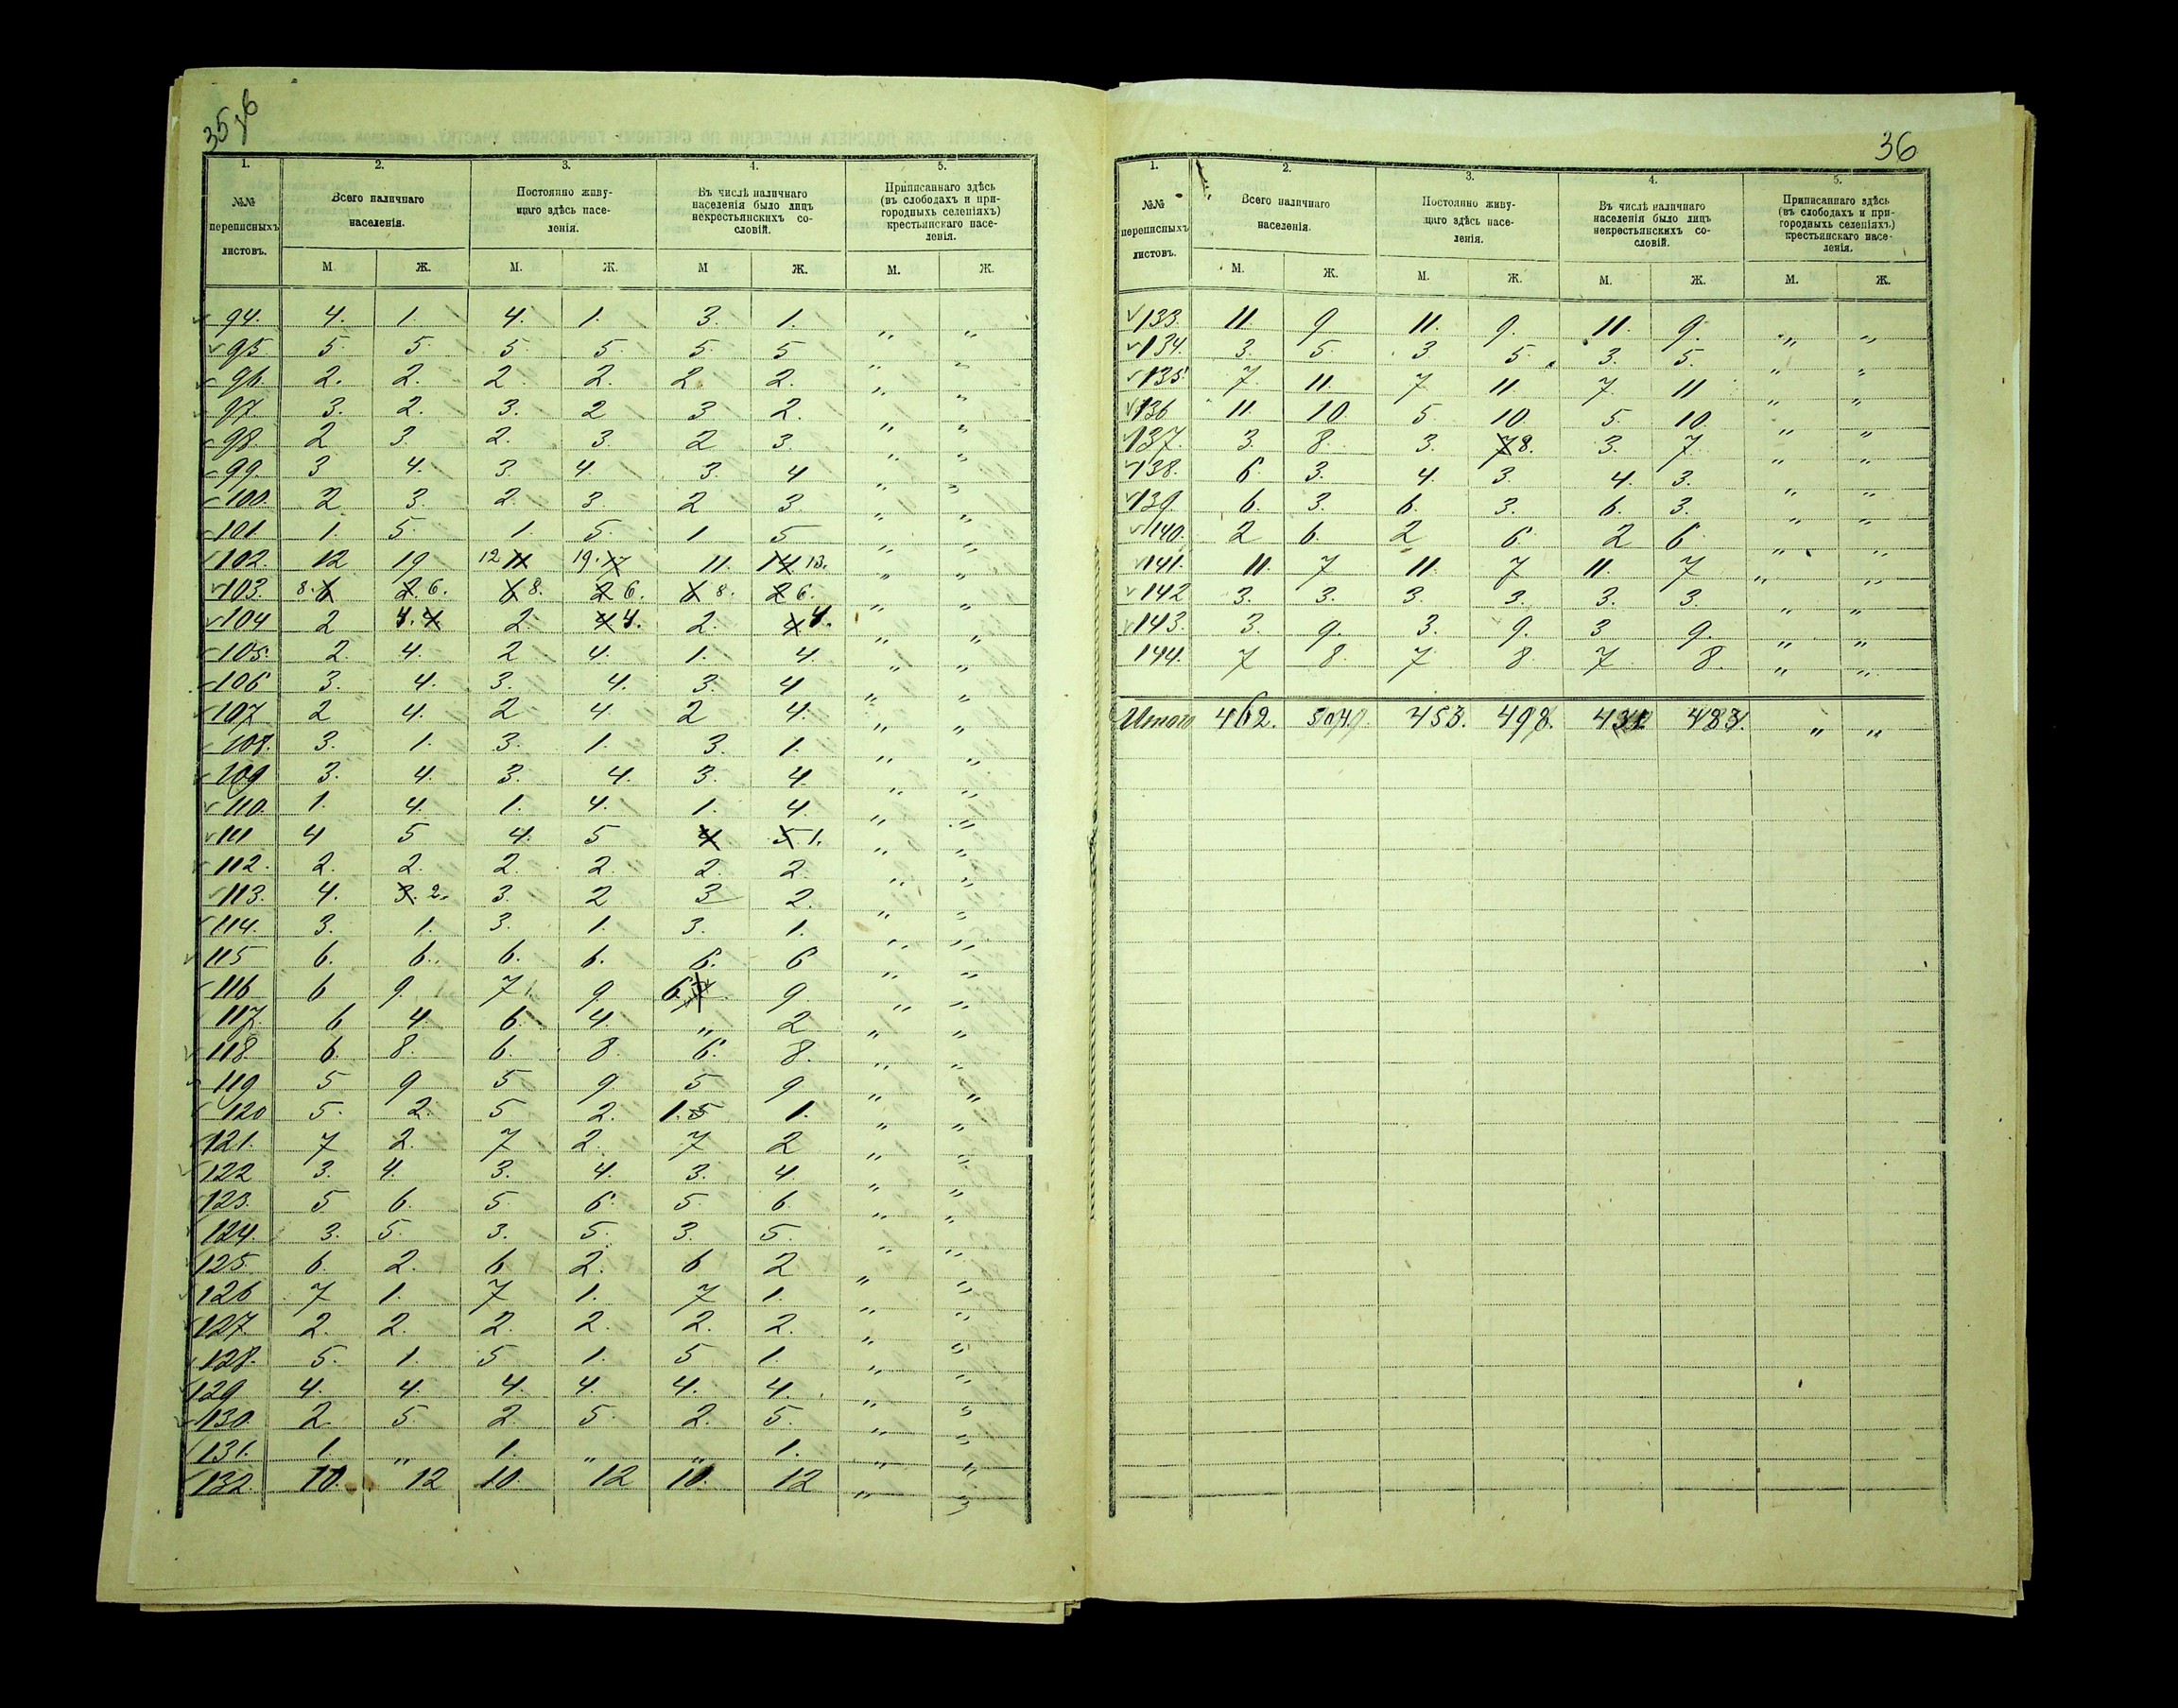 1. 2. 3. 4. 5.
№№ переписныхъ листовъ. Всего наличнаго населенія. Постоянно живущаго здѣсь населенія. Въ числѣ наличнаго населенія было лицъ некрестьянскихъ сословій. Приписаннаго здѣсь (въ слободахъ и пригородныхъ селеніяхъ) крестьянскаго населенія.
М. Ж. М. Ж. М Ж. М. Ж.
94. 4. 1. 4. 1. 3. 1. " "
95 5 5 5 5. 5 5 " "
96. 2. 2. 2 2. 2 2. " "
97. 3. 2. 3. 2 3 2. " "
98 2 3. 2. 3. 2 3. " "
99. 3 4. 3. 4. 3. 4 " "
100. 2 3. 2. 3. 2 3. " "
101 1. 5. 1. 5. 1 5 " "
102. 12 19 12 11 19. 17 11. 14 13. " "
103. 8. 2. 6. 8. 2 6. 8. 2 6. " "
104 2 4. 4. 2. 4 4. 2. 4 4. " "
105. 2. 4. 2 4. 1. 4. " "
106 3. 4. 3. 4. 3. 4 " "
107 2 4. 2 4 2 4. " "
108. 3. 1. 3. 1. 3. 1. " "
109 3. 4. 3. 4. 3. 4. " "
110. 1. 4. 1. 4. 1. 4. " "
111 4 5 4. 5 4 5. 1. " "
112. 2. 2. 2. 2. 2. 2. " "
113. 4. 3. 2. 3. 2 3 2. " "
114. 3. 1. 3. 1. 3. 1. " "
115 6. 6. 6. 6. 6. 6 " "
116 6 9. 7 9. 6. 9. " "
117. 6 4. 6. 4. " 2 " "
118 6. 8. 6. 8. 6. 8. " "
119 5 9 5 9. 5 9 " "
120 5. 2. 5 2. 1. 5 1. " "
121. 7 2. 7 2. 7 2 " "
122 3. 4. 3. 4. 3. 4. " "
123. 5 6. 5. 6. 5. 6. " "
124. 3. 5. 3. 5. 3. 5. " "
125. 6. 2. 6 2. 6 2 " "
126 7 1. 7 1. 7 1. " "
127. 2. 2. 2. 2. 2. 2. " "
128. 5. 1. 5 1. 5 1. " "
129 4. 4. 4. 4. 4. 4. " "
130. 2. 5. 2. 5. 2. 5. " "
131. 1. " 1. " " 1. " "
132. 10. 12 10. 12 10. 12 " "
36
1. 2. 3. 4. 5.
№№ переписныхъ листовъ. Всего наличнаго населенія. Постоянно живущаго здѣсь населенія. Въ числѣ наличнаго населенія было лицъ некрестьянскихъ сословій. Приписаннаго здѣсь (въ слободахъ и пригородныхъ селеніяхъ) крестьянскаго населенія.
М. Ж. М. Ж. М. Ж. М. Ж.
133. 11. 9 11. 9. 11. 9. " "
134. 3. 5. 3. 5. 3. 5. " "
135. 7. 11. 7 11. 7. 11 " "
136 11. 10. 5 10. 5. 10. " "
137. 3. 8. 3. 7 8. 3. 7. " "
138. 6. 3. 4. 3. 4. 3. " "
139. 6. 3. 6. 3. 6. 3. " "
140. 2 6. 2 6. 2 6 " "
141. 11. 7 11. 7 11. 7 " "
142 3. 3. 3. 3. 3. 3. " "
143. 3. 9. 3. 9. 3 9. " "
144. 7 8. 7 8. 7 8. " "
Итого 462. 453. 498. 483. " "